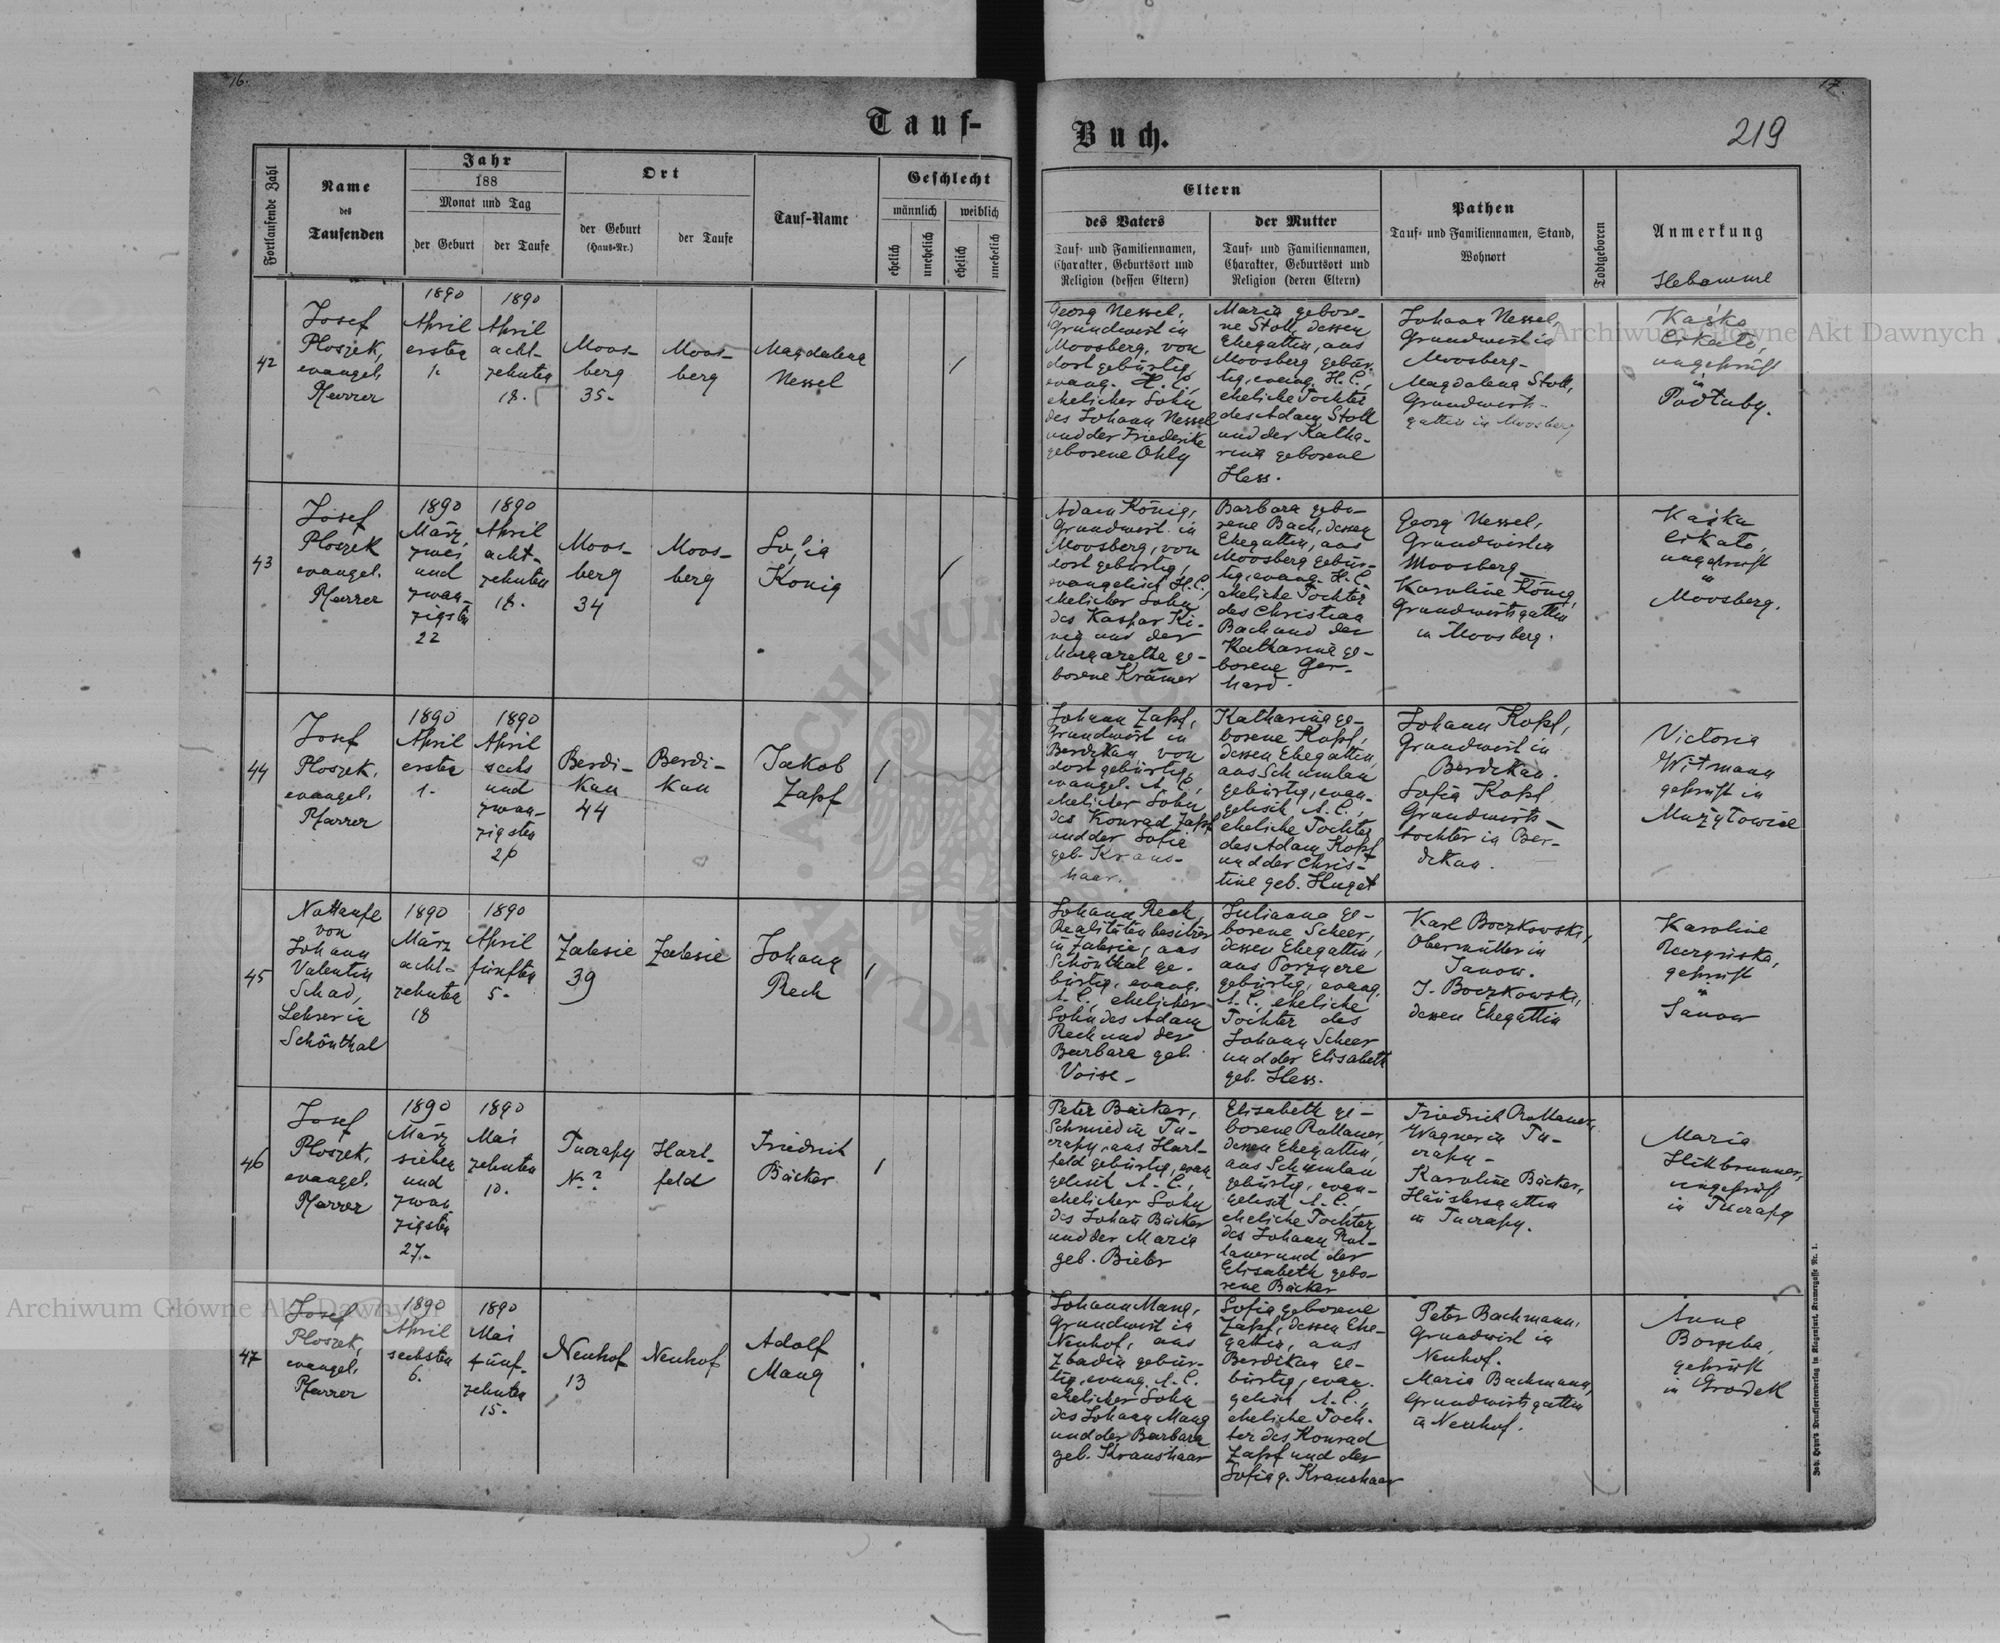 16.
17.
Tauf-
Buch.
219
Fortlaufende Zahl
Name
des
Taufenden
Jahr
188
Monat und Tag
der Geburt
der Taufe
Ort
der Geburt
(Haus-Nr.)
der Taufe
Tauf-Name
Geschlecht
männlich
weiblich
ehelich
unehelich
ehelich
unehelich
Eltern
des Vaters
Tauf- und Familiennamen,
Charakter, Geburtsort und
Religion (dessen Eltern)
der Mutter
Tauf- und Familiennamen,
Charakter, Geburtsort und
Religion (deren Eltern)
Pathen
Tauf- und Familiennamen, Stand,
Wohnort
Todtgeboren
Anmerkung
Hebamme
42
Josef
Ploszek,
evangel.
Pfarrer
1890
April
erster
1.
1890
April
acht-
zehnten
18.
Moos-
berg
35.
Moos-
berg
Magdalena
Nessel
/
Georg Nessel,
Grundwirt in
Moosberg, von
dort gebürtig,
evang. H. C.,
ehelicher Sohn
des Johann Nessel
und der Friederike
geborene Ohly
Maria gebore-
ne Stoll, dessen
Ehegattin, aus
Moosberg gebür-
tig, evang. H. C.,
eheliche Tochter
des Adam Stoll
und der Katha-
rina geborene
Hess.
Johann Nessel,
Grundwirt in
Moosberg.
Magdalena Stoll,
Grundwirts-
gattin in Moosberg
Kaśka
ungeprüft
in
Podłuby.
43
Josef
Ploszek
evangel.
Pfarrer
1890
März
zwei
und
zwan-
zigsten
22
1890
April
acht-
zehnten
18.
Moos-
berg
34
Moos-
berg
Sofia
König
/
Adam König,
Grundwirt in
Moosberg, von
dort gebürtig,
evangelisch H. C.,
ehelicher Sohn
des Kaspar Kö-
nig und der
Margaretha ge-
borene Krämer
Barbara gebo-
rene Bach, dessen
Ehegattin, aus
Moosberg gebür-
tig, evang. H. C.
eheliche Tochter
des Christian
Bach und der
Katharina ge-
borene Ger-
hard.
Georg Nessel,
Grundwirt in
Moosberg
Karoline König,
Grundwirtsgattin
in Moosberg.
Kaśka
ungeprüft
in
Moosberg.
44
Josef
Ploszek,
evangel.
Pfarrer
1890
April
erster
1.
1890
April
sechs
und
zwan-
zigsten
26
Berdi-
kau
44
Berdi-
kau
Jakob
Zapf
/
Johann Zapf,
Grundwirt in
Berdikau von
dort gebürtig,
evangel. A. C.,
ehelicher Sohn
des Konrad Zapf
und der Sofie
geb. Kraus-
haar.
Katharina ge-
borene Kopf,
dessen Ehegattin,
aus Schumlau
gebürtig, evan-
gelisch A. C.,
eheliche Tochter
des Adam Kopf
und der Chris-
tine geb. Huget
Johann Kopf,
Grundwirt in
Berdikau.
Sofia Kopf
Grundwirts-
tochter in Ber-
dikau.
Victoria
Witmann
geprüft in
Mużyłowice
45
Nottaufe
von
Johann
Valentin
Schad,
Lehrer in
Schönthal
1890
März
acht-
zehnter
18
1890
April
fünften
5.
Zalesie
39
Zalesie
Johann
Rech
/
Johann Rech,
Realitätenbesitzer
in Zalesie, aus
Schönthal ge-
bürtig, evang.
A. C., ehelicher
Sohn des Adam
Rech und der
Barbara geb.
Voise
Juliana ge-
borene Scheer,
dessen Ehegattin,
aus Porzyere
gebürtig, evang.
A. C., eheliche
Tochter des
Johann Scheer
und der Elisabeth
geb. Hess.
Karl Boczkowski,
Obermüller in
Janow.
J. Boczkowska,
dessen Ehegattin
Karoline
geprüft
in
Janow
46
Josef
Ploszek,
evangel.
Pfarrer
1890
März
sieben
und
zwan-
zigsten
27.
1890
Mai
zehnten
10.
Tucrapy
Nr. ?
Hart-
feld
Friedrich
Bäcker
/
Peter Bäcker,
Schmied in Tu-
crapy, aus Hart-
feld gebürtig, evan-
gelisch A. C.,
ehelicher Sohn
des Johan Bäcker
und der Maria
geb. Bieber
Elisabeth ge-
borene Rollauer,
dessen Ehegattin,
aus Schumlau
gebürtig, evan-
gelisch A. C.,
eheliche Tochter
des Johann Rol-
lauer und der
Elisabeth gebo-
rene Bäcker
Friedrich Rollauer,
Wagner in Tu-
crapy
Karoline Bäcker,
Häuslersgattin
in Tucrapy.
Maria
Hillbrunner,
ungeprüft
in Tucrapy
47
Josef
Ploszek,
evangel.
Pfarrer
1890
April
sechsten
6.
1890
Mai
fünf-
zehnten
15.
Neuhof
13
Neuhof
Adolf
Mang
Johann Mang,
Grundwirt in
Neuhof, aus
Zbadin gebür-
tig, evang. A. C.
ehelicher Sohn
des Johann Mang
und der Barbara
geb. Kraushaar
Sofia geborene
Zapf, dessen Ehe-
gattin, aus
Berdikau ge-
bürtig, evan-
gelisch A. C.,
eheliche Toch-
ter des Konrad
Zapf und der
Sofia g. Kraushaar
Peter Bachmann,
Grundwirt in
Neuhof.
Maria Bachmann,
Grundwirtsgattin
in Neuhof.
Anna
geprüft
in Grodek
Joh. Heyn's Drucksortenverlag in Klagenfurt, Kramergasse Nr. 1.
Archiwum Główne Akt Dawnych
Archiwum Główne Akt Dawnych
ARCHIWUM
AKT DAWNYCH